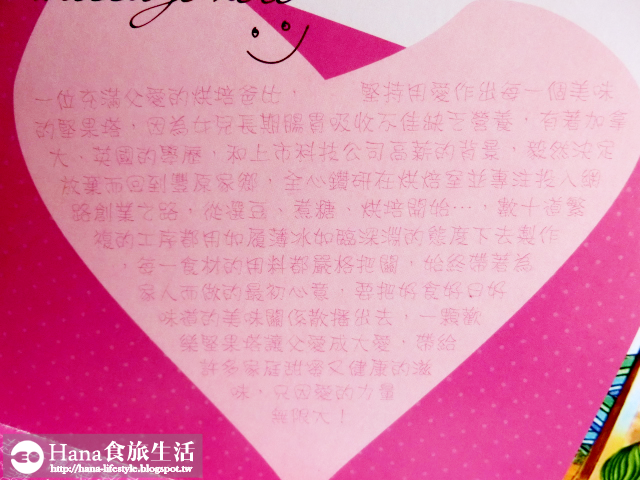 一位充滿父愛的烘培爸比, 堅持用愛作出每一個美味
的堅果塔, 因為女兒長期腸胃吸收不佳缺乏營養, 有著加拿
大、英國的學歷, 和上市科技公司高薪的背景, 毅然決定
放棄而回到豐原家鄉, 全心鑽研在烘焙室並專注投入網
路創業之路, 從選豆、煮糖、烘培開始…, 數十道繁
複的工序都用如履薄冰如臨深淵的態度下去製作
, 每一食材的用料都嚴格把關, 始終帶著為
家人而做的最初心意, 要把好食好日好
味道的美味關係散播出去, 一顆歡
樂堅果塔讓父愛成大愛, 帶給
許多家庭既養又健康的滋
味, 只因愛的力量
無限大!
Hana食旅生活
http://hana-lifestyle.blogspot.tw